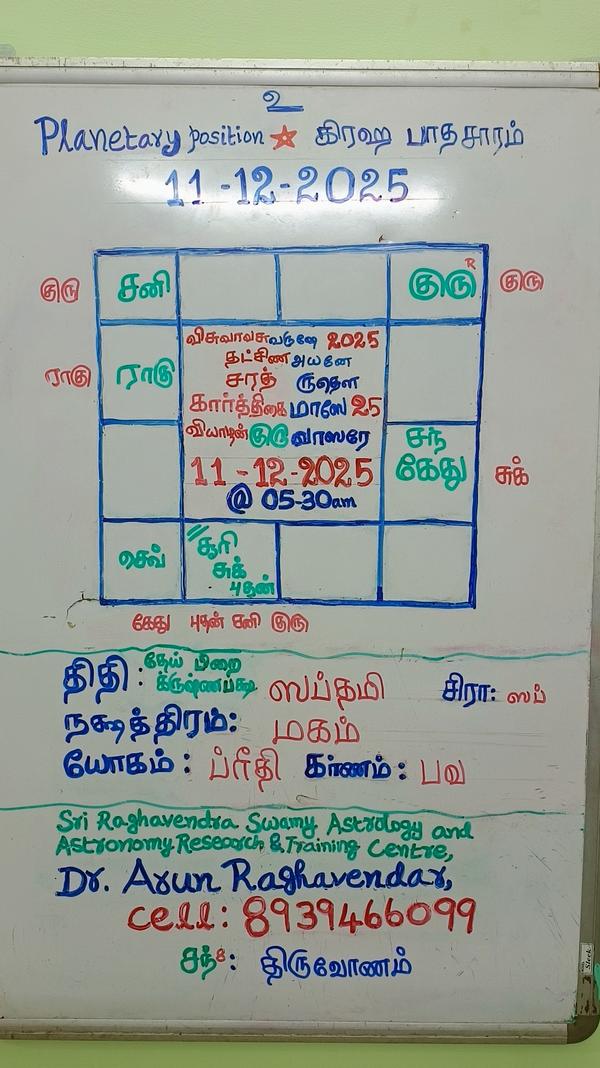 உ
Planetary position ☆ கிரஹ பாதசாரம்
11-12-2025
குரு சனி குரு R குரு
ராகு ராகு
விசுவாவசுவருஷே 2025
தட்சிண அயனே
சரத் ருதௌ
கார்த்திகை மாஸே 25
வியாழன் குரு வாஸரே
11-12-2025
@ 05-30am
சந்
கேது சுக்
செவ் சூரி
சுக்
புதன்
கேது புதன் சனி குரு
திதி: தேய் பிறை
க்ருஷ்ணபக்ஷ ஸப்தமி சிரா: ஸப்
நக்ஷத்திரம்: மகம்
யோகம்: ப்ரீதி கர்ணம்: பவ
Sri Raghavendra Swamy Astrology and
Astronomy Research & Training Centre,
Dr. Arun Raghavendar,
cell: 8939466099
சந்8: திருவோணம்